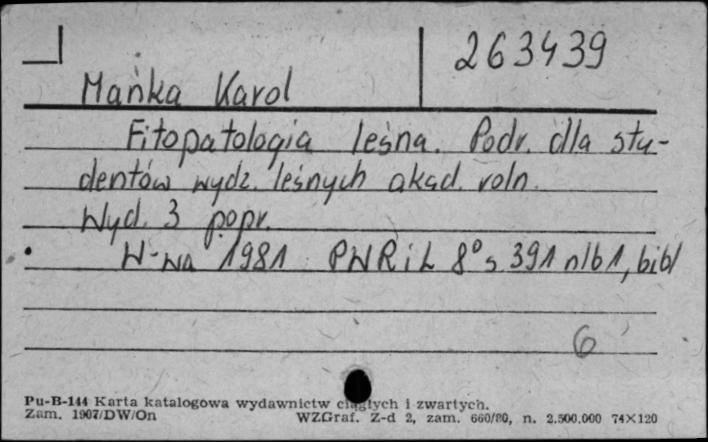 263439
Mańka Karol
Fitopatologia leśna. Podr. dla stu-
dentów wydz. leśnych akad. roln.
Wyd. 3 popr.
W-wa 1981 PWRiL 8° s. 391 nlb 1, bibl
6
Pu-B-144 Karta katalogowa wydawnictw ciągłych i zwartych.
Zam. 1907/DW/On WZGraf. Z-d 2, zam. 660/80, n. 2.500.000 74×120